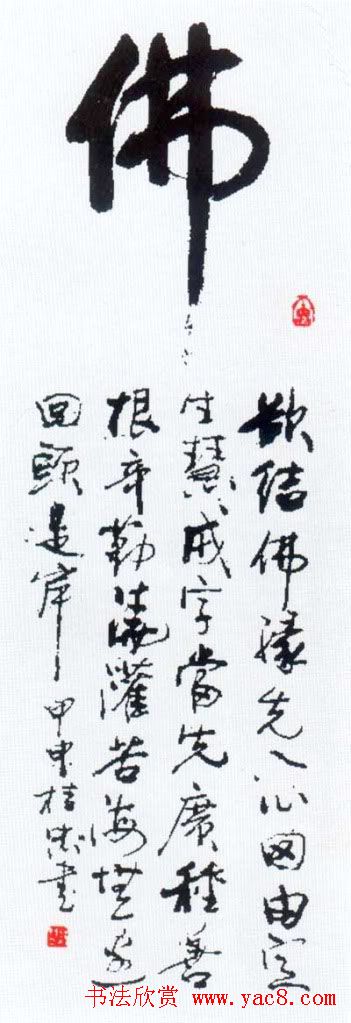 佛
欲结佛缘先入心因由定
生慧戒字当先广种善
根辛勤浇灌苦海无边
回头是岸 甲申桂忠书
书法欣赏 www.yac8.com